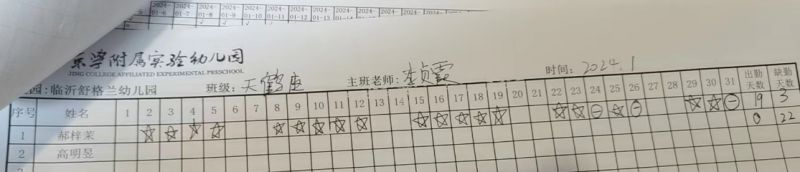 2024-01-6 2024-01-7 2024-01-8 2024-01-9 2024-01-10 2024-01-11 2024-01-12 2024-01-13 2024-01-14
京学附属实验幼儿园
JING COLLEGE AFFILIATED EXPERIMENTAL PRESCHOOL
园：临沂舒格兰幼儿园 班级：天鹤座 主班老师：李贞霞 时间：2024.1
序号 姓名 1 2 3 4 5 6 7 8 9 10 11 12 13 14 15 16 17 18 19 20 21 22 23 24 25 26 27 28 29 30 31 出勤天数 缺勤天数
1 郝梓茉 ☆ ☆ ☆ ☆ ☆ ☆ ☆ ☆ ☆ ☆ ☆ ☆ ☆ ☆ ☆ ☆ ⊖ ☆ ⊖ ☆ ☆ ⊖ 19 3
2 高明昱 0 22
3